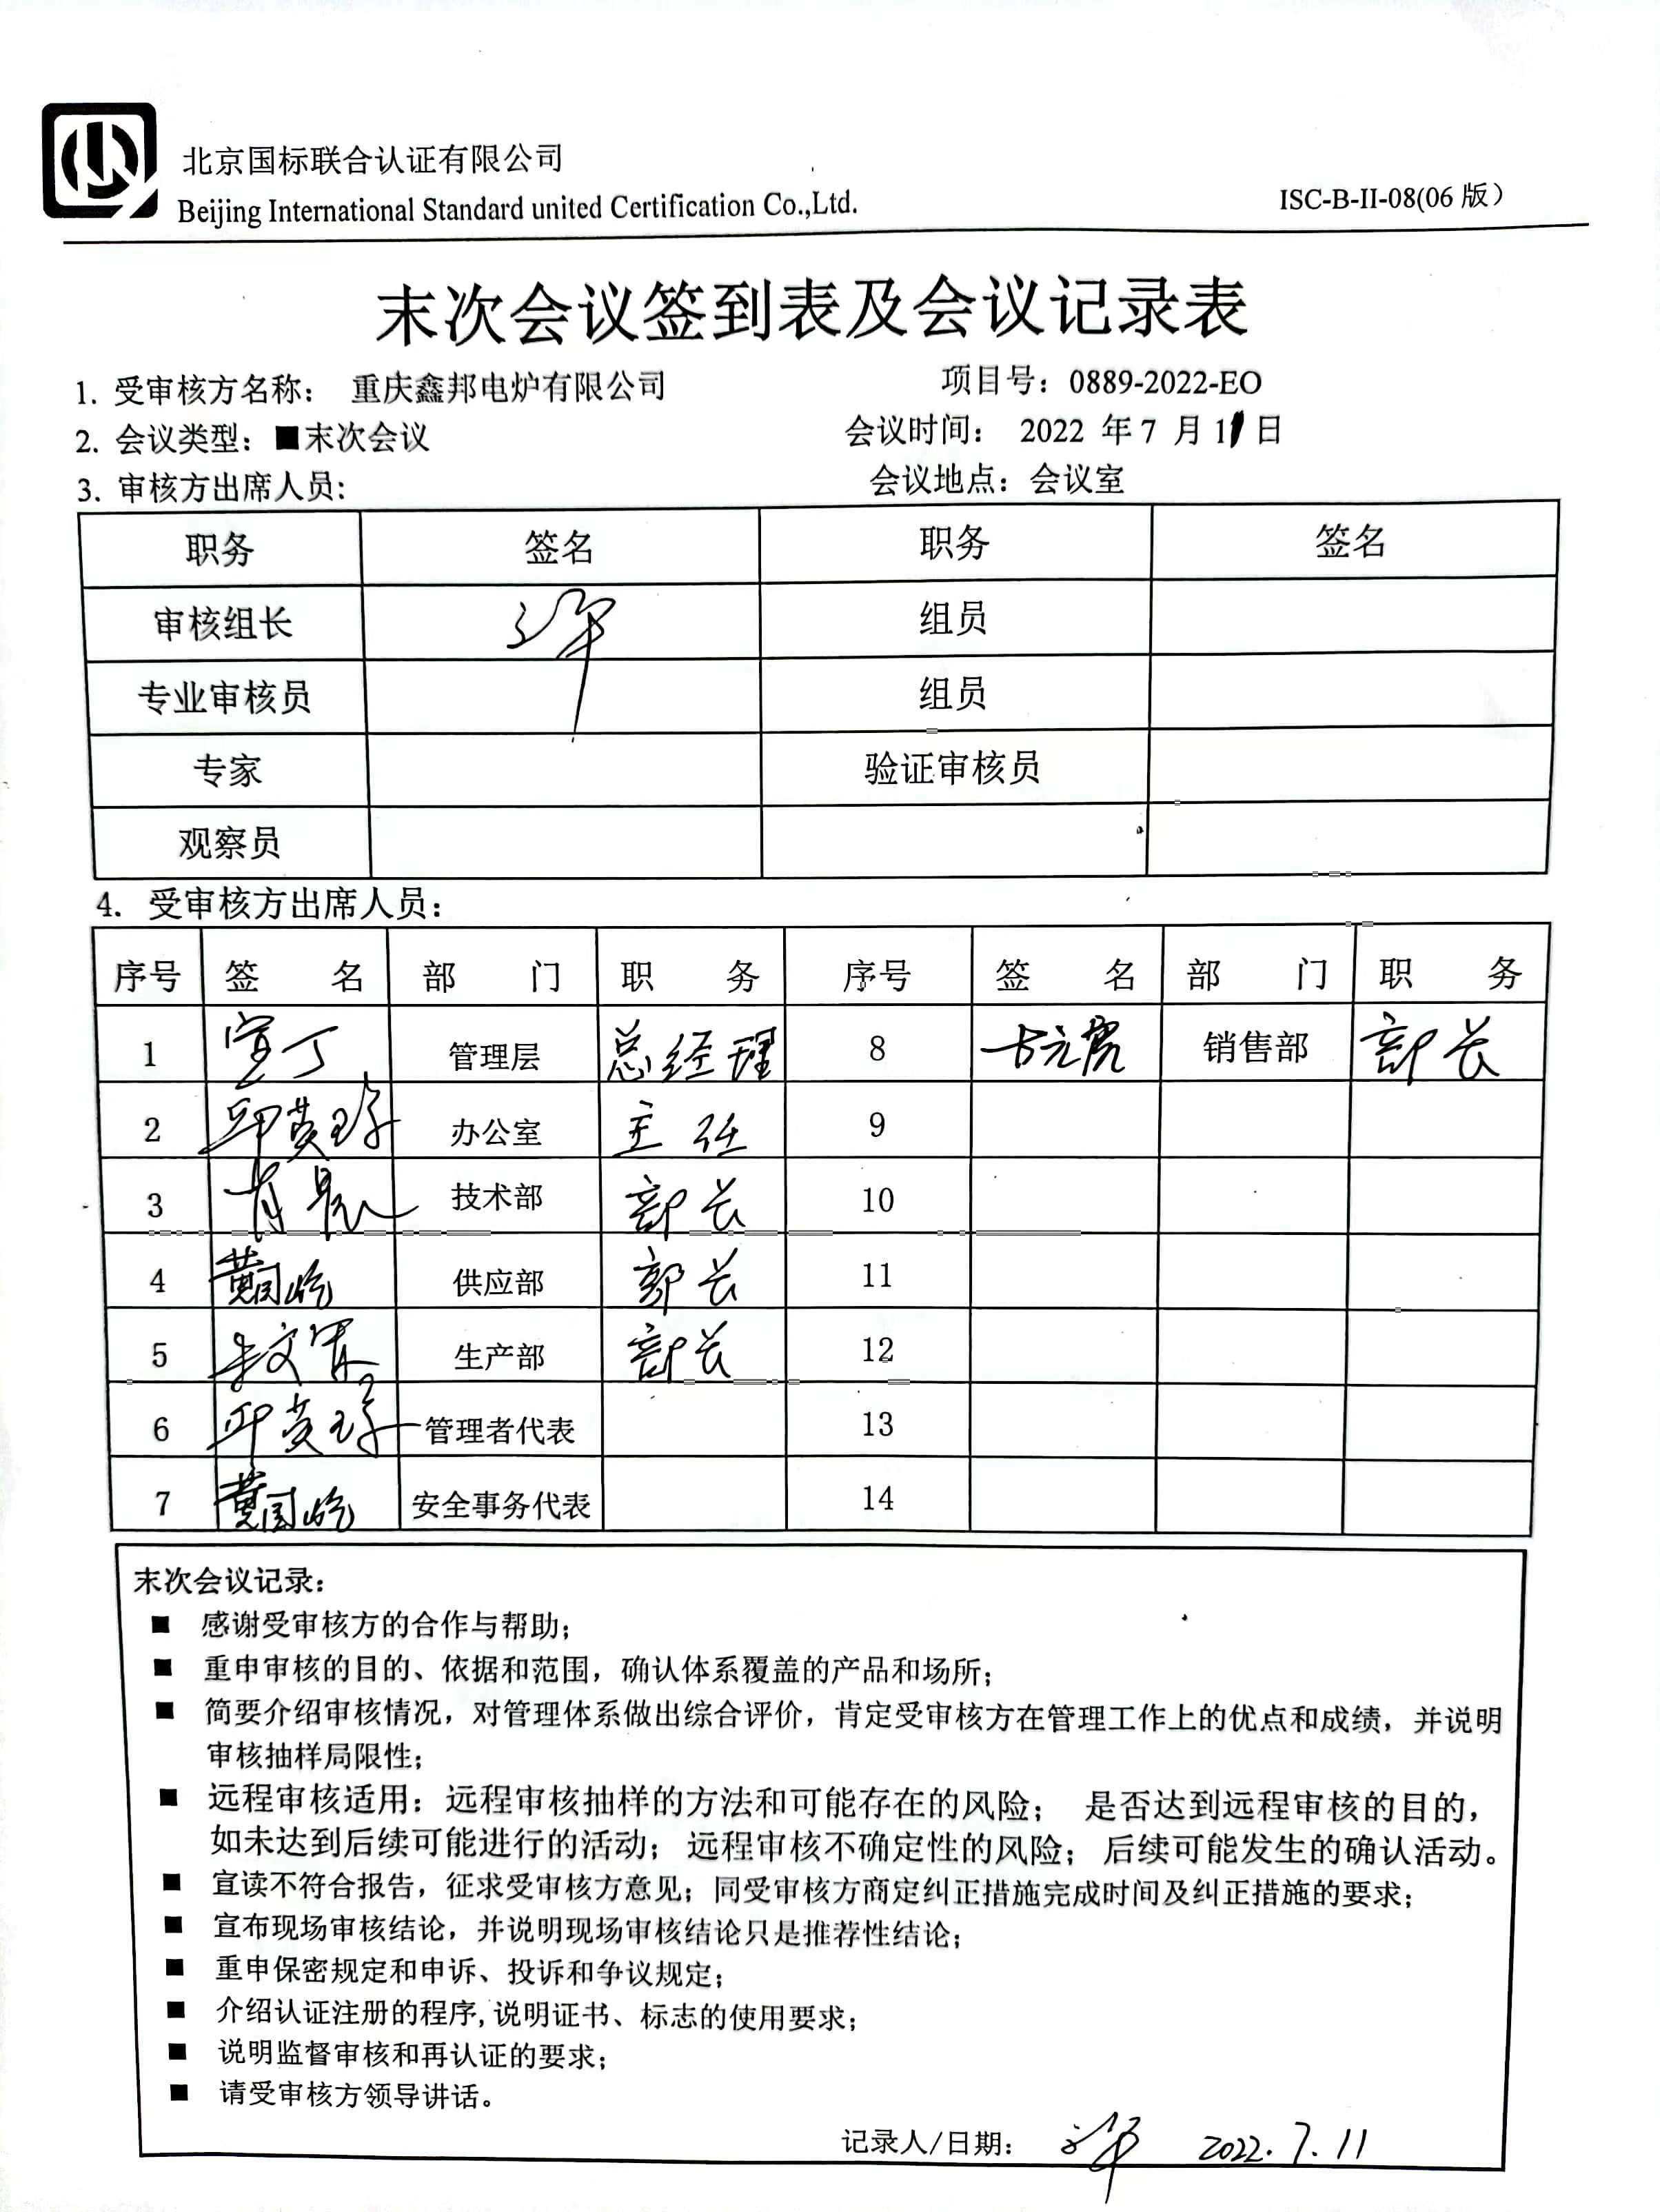 北京国标联合认证有限公司
Beijing International Standard united Certification Co.,Ltd.
ISC-B-II-08(06 版）
末次会议签到表及会议记录表
1. 受审核方名称： 重庆鑫邦电炉有限公司 项目号：0889-2022-EO
2. 会议类型：■末次会议 会议时间： 2022 年 7 月 11 日
3. 审核方出席人员： 会议地点：会议室
职务 签名 职务 签名
审核组长 组员
专业审核员 组员
专家 验证审核员
观察员
4. 受审核方出席人员：
序号 签 名 部 门 职 务 序号 签 名 部 门 职 务
1 管理层 总经理 8 销售部 部长
2 办公室 主任 9
3 技术部 部长 10
4 供应部 部长 11
5 生产部 部长 12
6 管理者代表 13
7 安全事务代表 14
末次会议记录：
■ 感谢受审核方的合作与帮助；
■ 重申审核的目的、依据和范围，确认体系覆盖的产品和场所；
■ 简要介绍审核情况，对管理体系做出综合评价，肯定受审核方在管理工作上的优点和成绩，并说明
审核抽样局限性；
■ 远程审核适用：远程审核抽样的方法和可能存在的风险； 是否达到远程审核的目的，
如未达到后续可能进行的活动； 远程审核不确定性的风险； 后续可能发生的确认活动。
■ 宣读不符合报告，征求受审核方意见；同受审核方商定纠正措施完成时间及纠正措施的要求；
■ 宣布现场审核结论，并说明现场审核结论只是推荐性结论；
■ 重申保密规定和申诉、投诉和争议规定；
■ 介绍认证注册的程序,说明证书、标志的使用要求；
■ 说明监督审核和再认证的要求；
■ 请受审核方领导讲话。
记录人/日期： 2022.7.11